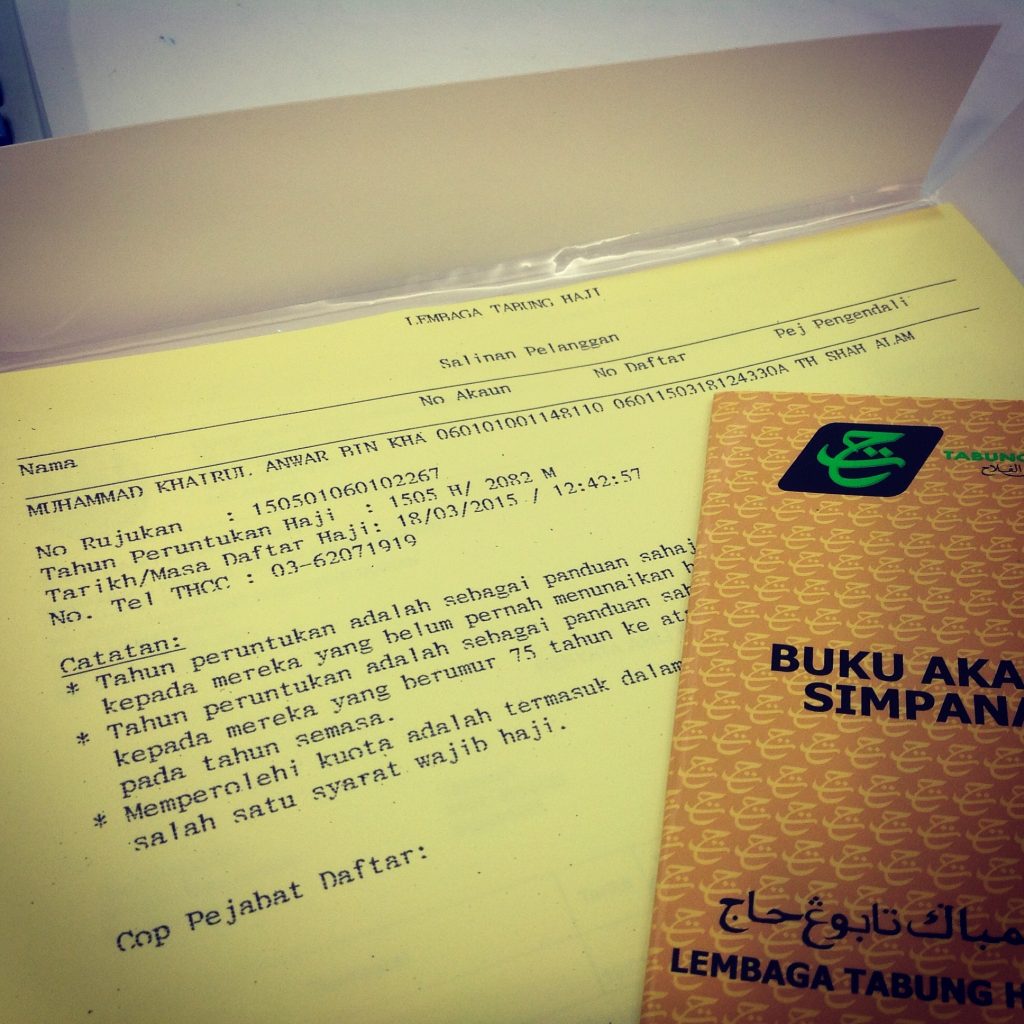 LEMBAGA TABUNG HAJI
Salinan Pelanggan
Nama No Akaun No Daftar Pej Pengendali
MUHAMMAD KHAIRUL ANWAR BIN KHA 060101001148110 0601150318124330A TH SHAH ALAM
No Rujukan : 150501060102267
Tahun Peruntukan Haji : 1505 H/ 2082 M
Tarikh/Masa Daftar Haji: 18/03/2015 / 12:42:57
No. Tel THCC : 03-62071919
Catatan:
* Tahun peruntukan adalah sebagai panduan sahaj
kepada mereka yang belum pernah menunaikan h
* Tahun peruntukan adalah sebagai panduan sah
kepada mereka yang berumur 75 tahun ke at
pada tahun semasa.
* Memperolehi kuota adalah termasuk dalam
salah satu syarat wajib haji.
Cop Pejabat Daftar:
TABUNG
BUKU AKA
SIMPANA
مباݢ تابوڠ حاج
LEMBAGA TABUNG H